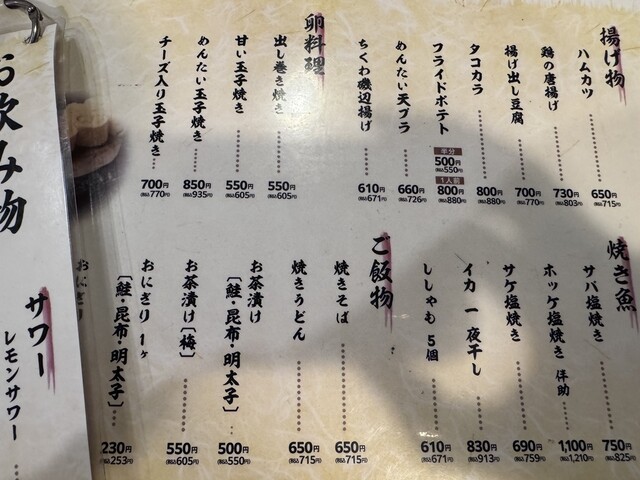 揚げ物
ハムカツ 650円 (税込715円)
鶏の唐揚げ 730円 (税込803円)
揚げ出し豆腐 700円 (税込770円)
タコカラ 800円 (税込880円)
フライドポテト 半分 500円 (税込550円) 1人前 800円 (税込880円)
めんたい天プラ 660円 (税込726円)
ちくわ磯辺揚げ 610円 (税込671円)
卵料理
出し巻き焼き 550円 (税込605円)
甘い玉子焼き 550円 (税込605円)
めんたい玉子焼き 850円 (税込935円)
チーズ入り玉子焼き 700円 (税込770円)
焼き魚
サバ塩焼き 750円 (税込825円)
ホッケ塩焼き 伴助 1,100円 (税込1,210円)
サケ塩焼き 690円 (税込759円)
イカ 一夜干し 830円 (税込913円)
ししゃも 5個 610円 (税込671円)
ご飯物
焼きそば 650円 (税込715円)
焼きうどん 650円 (税込715円)
お茶漬け
〔鮭・昆布・明太子〕 500円 (税込550円)
お茶漬け〔梅〕 550円 (税込605円)
おにぎり 1ヶ
〔鮭・昆布・明太子〕 230円 (税込253円)
おにぎり
お飲み物
サワー
レモンサワー